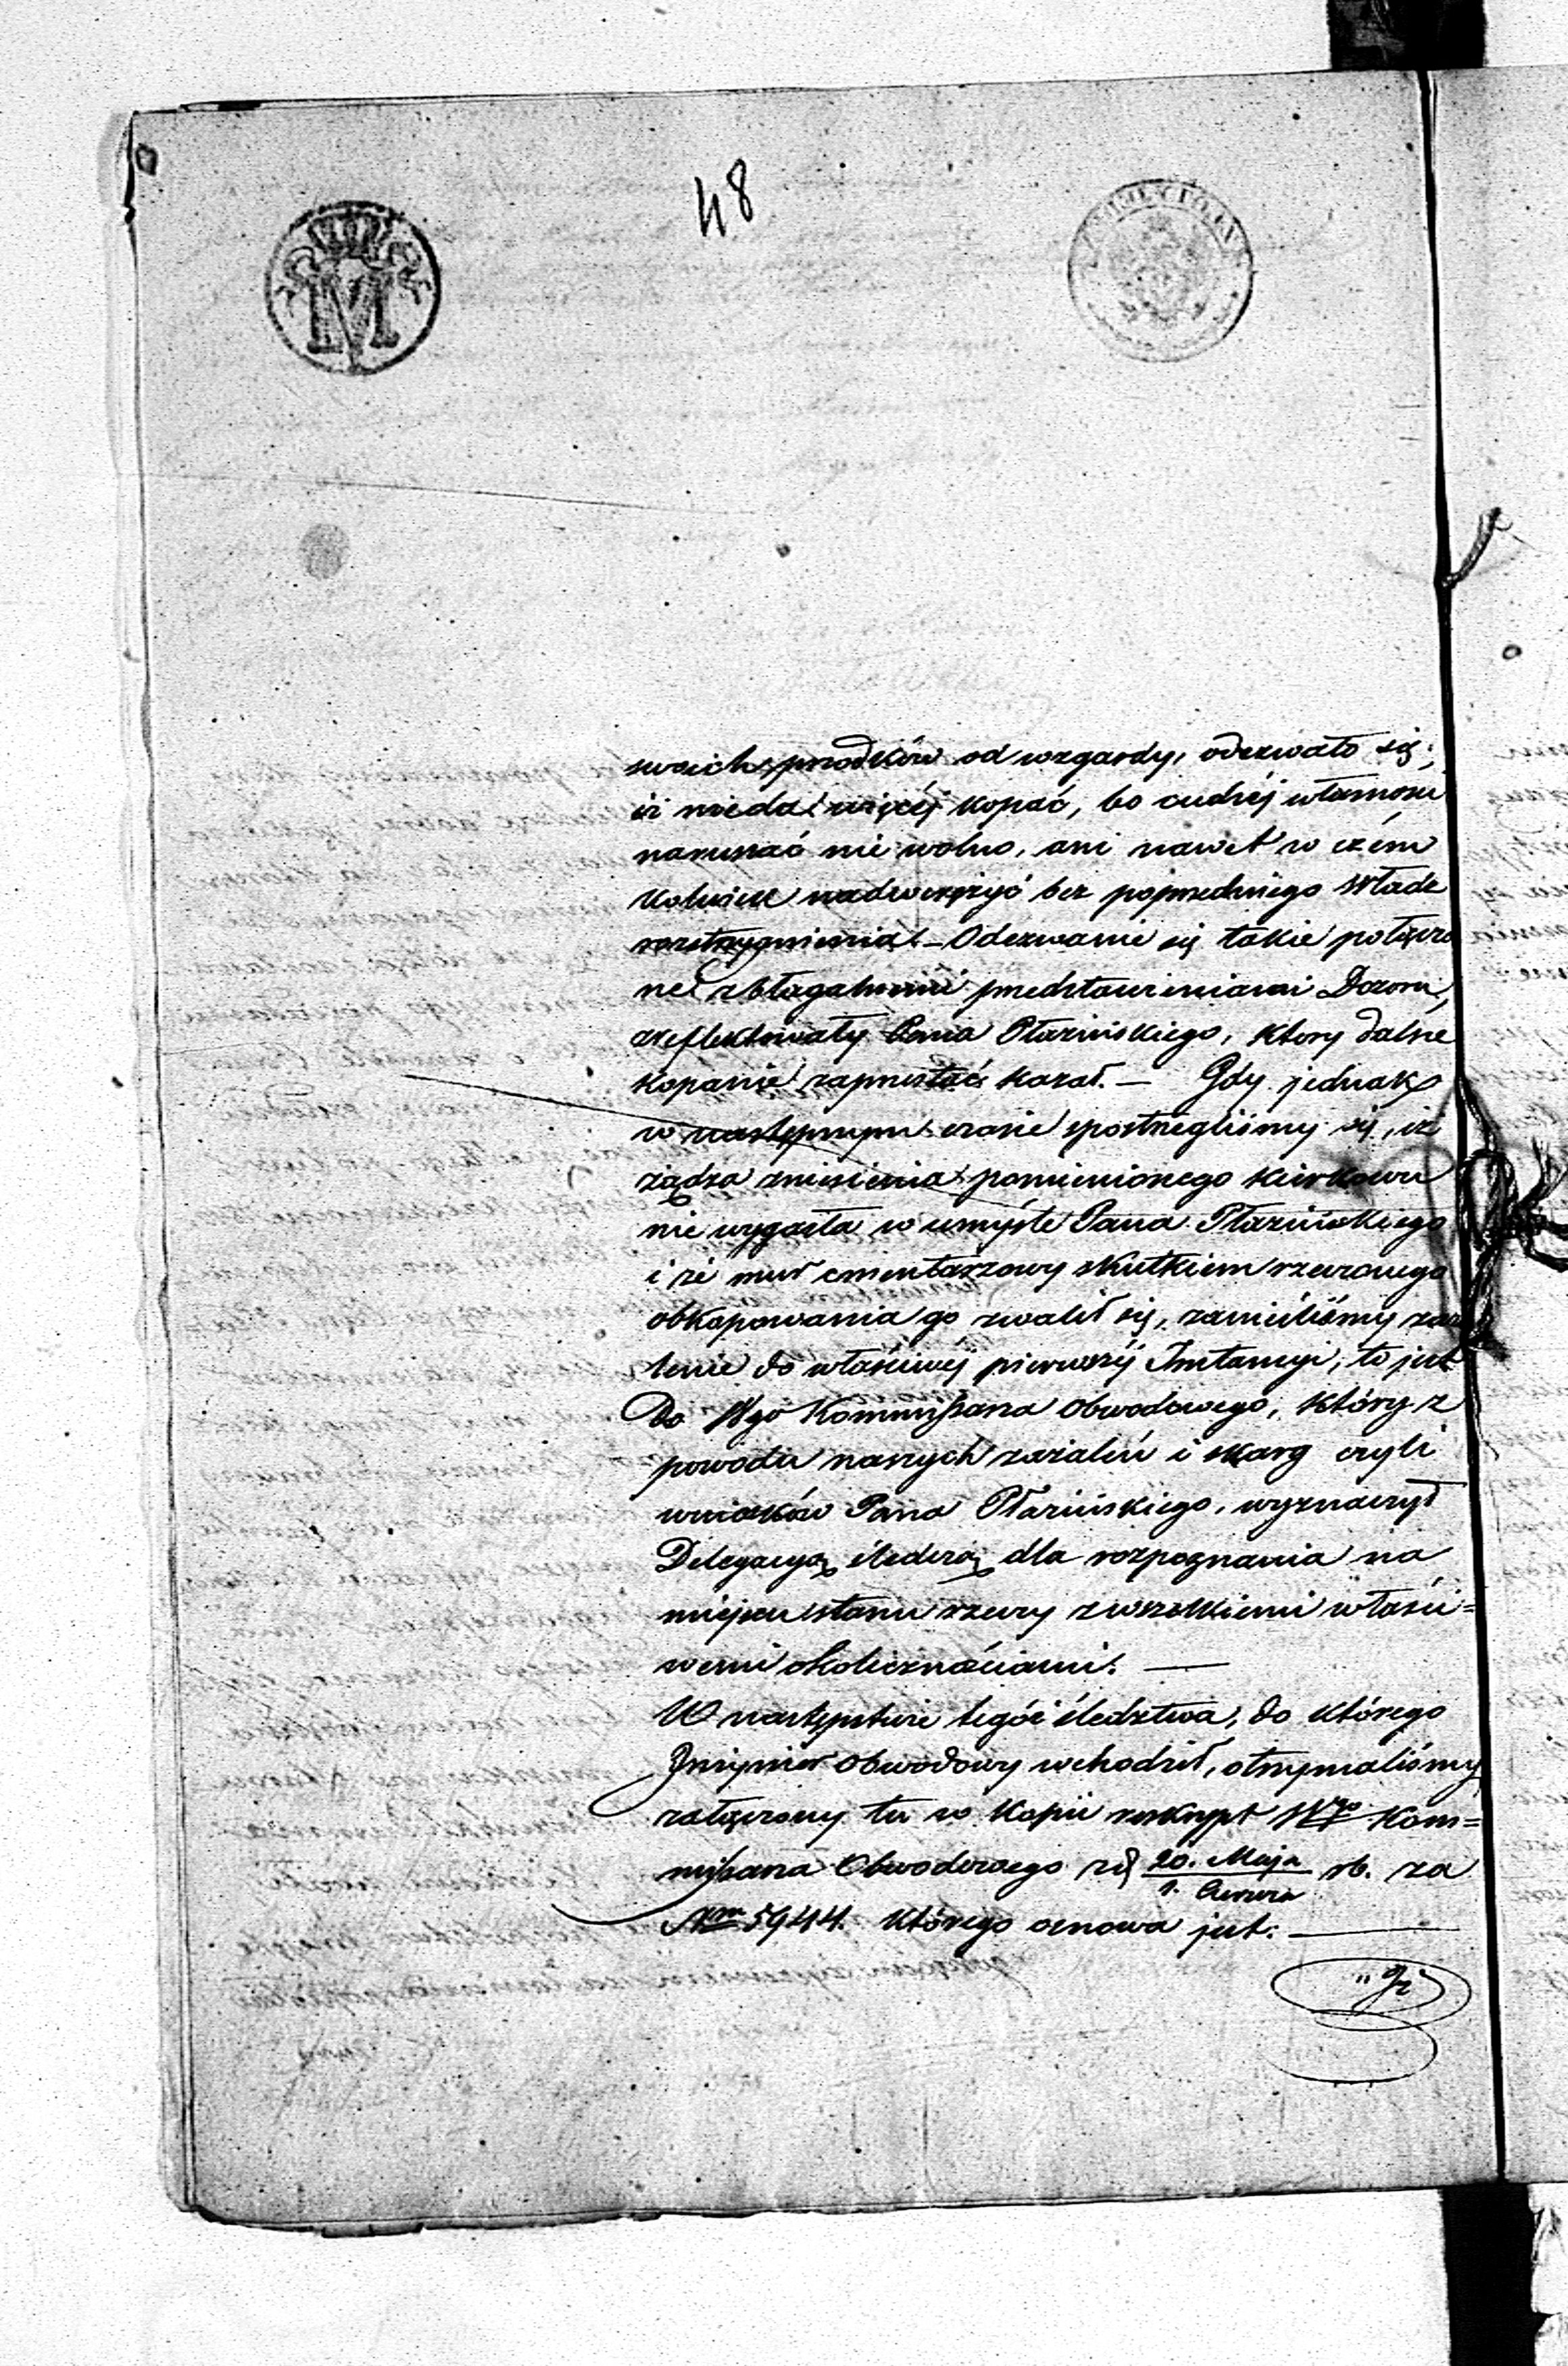 48
M
swoich przodków od wzgardy, odezwało się;
iż nieda więcéj kopać, bo cudzéj własnosci
naruszać nie wolno, ani nawet w czém
kolwiek nadwerężyć bez poprzedniego Władz
rozstrzygnienia. – Odezwanie się takie połączo
ne z błagalnemi przedstawieniami Dozoru,
zreflektowały Pana Płazińskiego, ktory dalsze
kopanie zaprzestać kazał. — Gdy jednak
w następnym czasie spostrzegliśmy się, iż
żądza zniesienia pomienionego kierkowu
nie wygasła w umyśle Pana Płazińskiego
i że mur cmentarzowy skutkiem rzeczonego
obkopowania go zwalił się, zanieśliśmy zaża
lenie do właściwéj pierwszéj Instancyi, to jest
do Wgo Kommissarza Obwodowego, który z
powodu naszych zażaleń i skarg czyli
wniosków Pana Płazińskiego, wyznaczył
Delegacyą śledczą dla rozpoznania na
miejscu stanu rzeczy z wszelkiemi właści=
wemi okolicznościami. —
W następstwie tegóż śledztwa, do którego
Inżynier Obwodowy wchodził, otrzymaliśmy
załączony tu w kopii reskrypt Wgo Kom=
missarza Obwodowego zd 20. Maja / 1. Czerwca rb. za
Nrm 5944. którego osnowa jest: —
"Iż